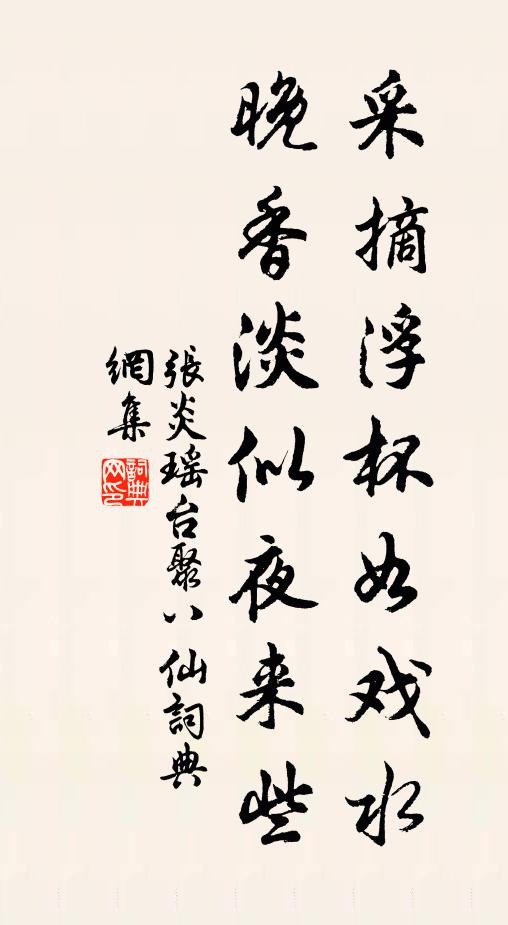 采摘浮杯如戏水
晚香淡似夜来些
張炎瑶台聚八仙詞典
網集
詞典網印